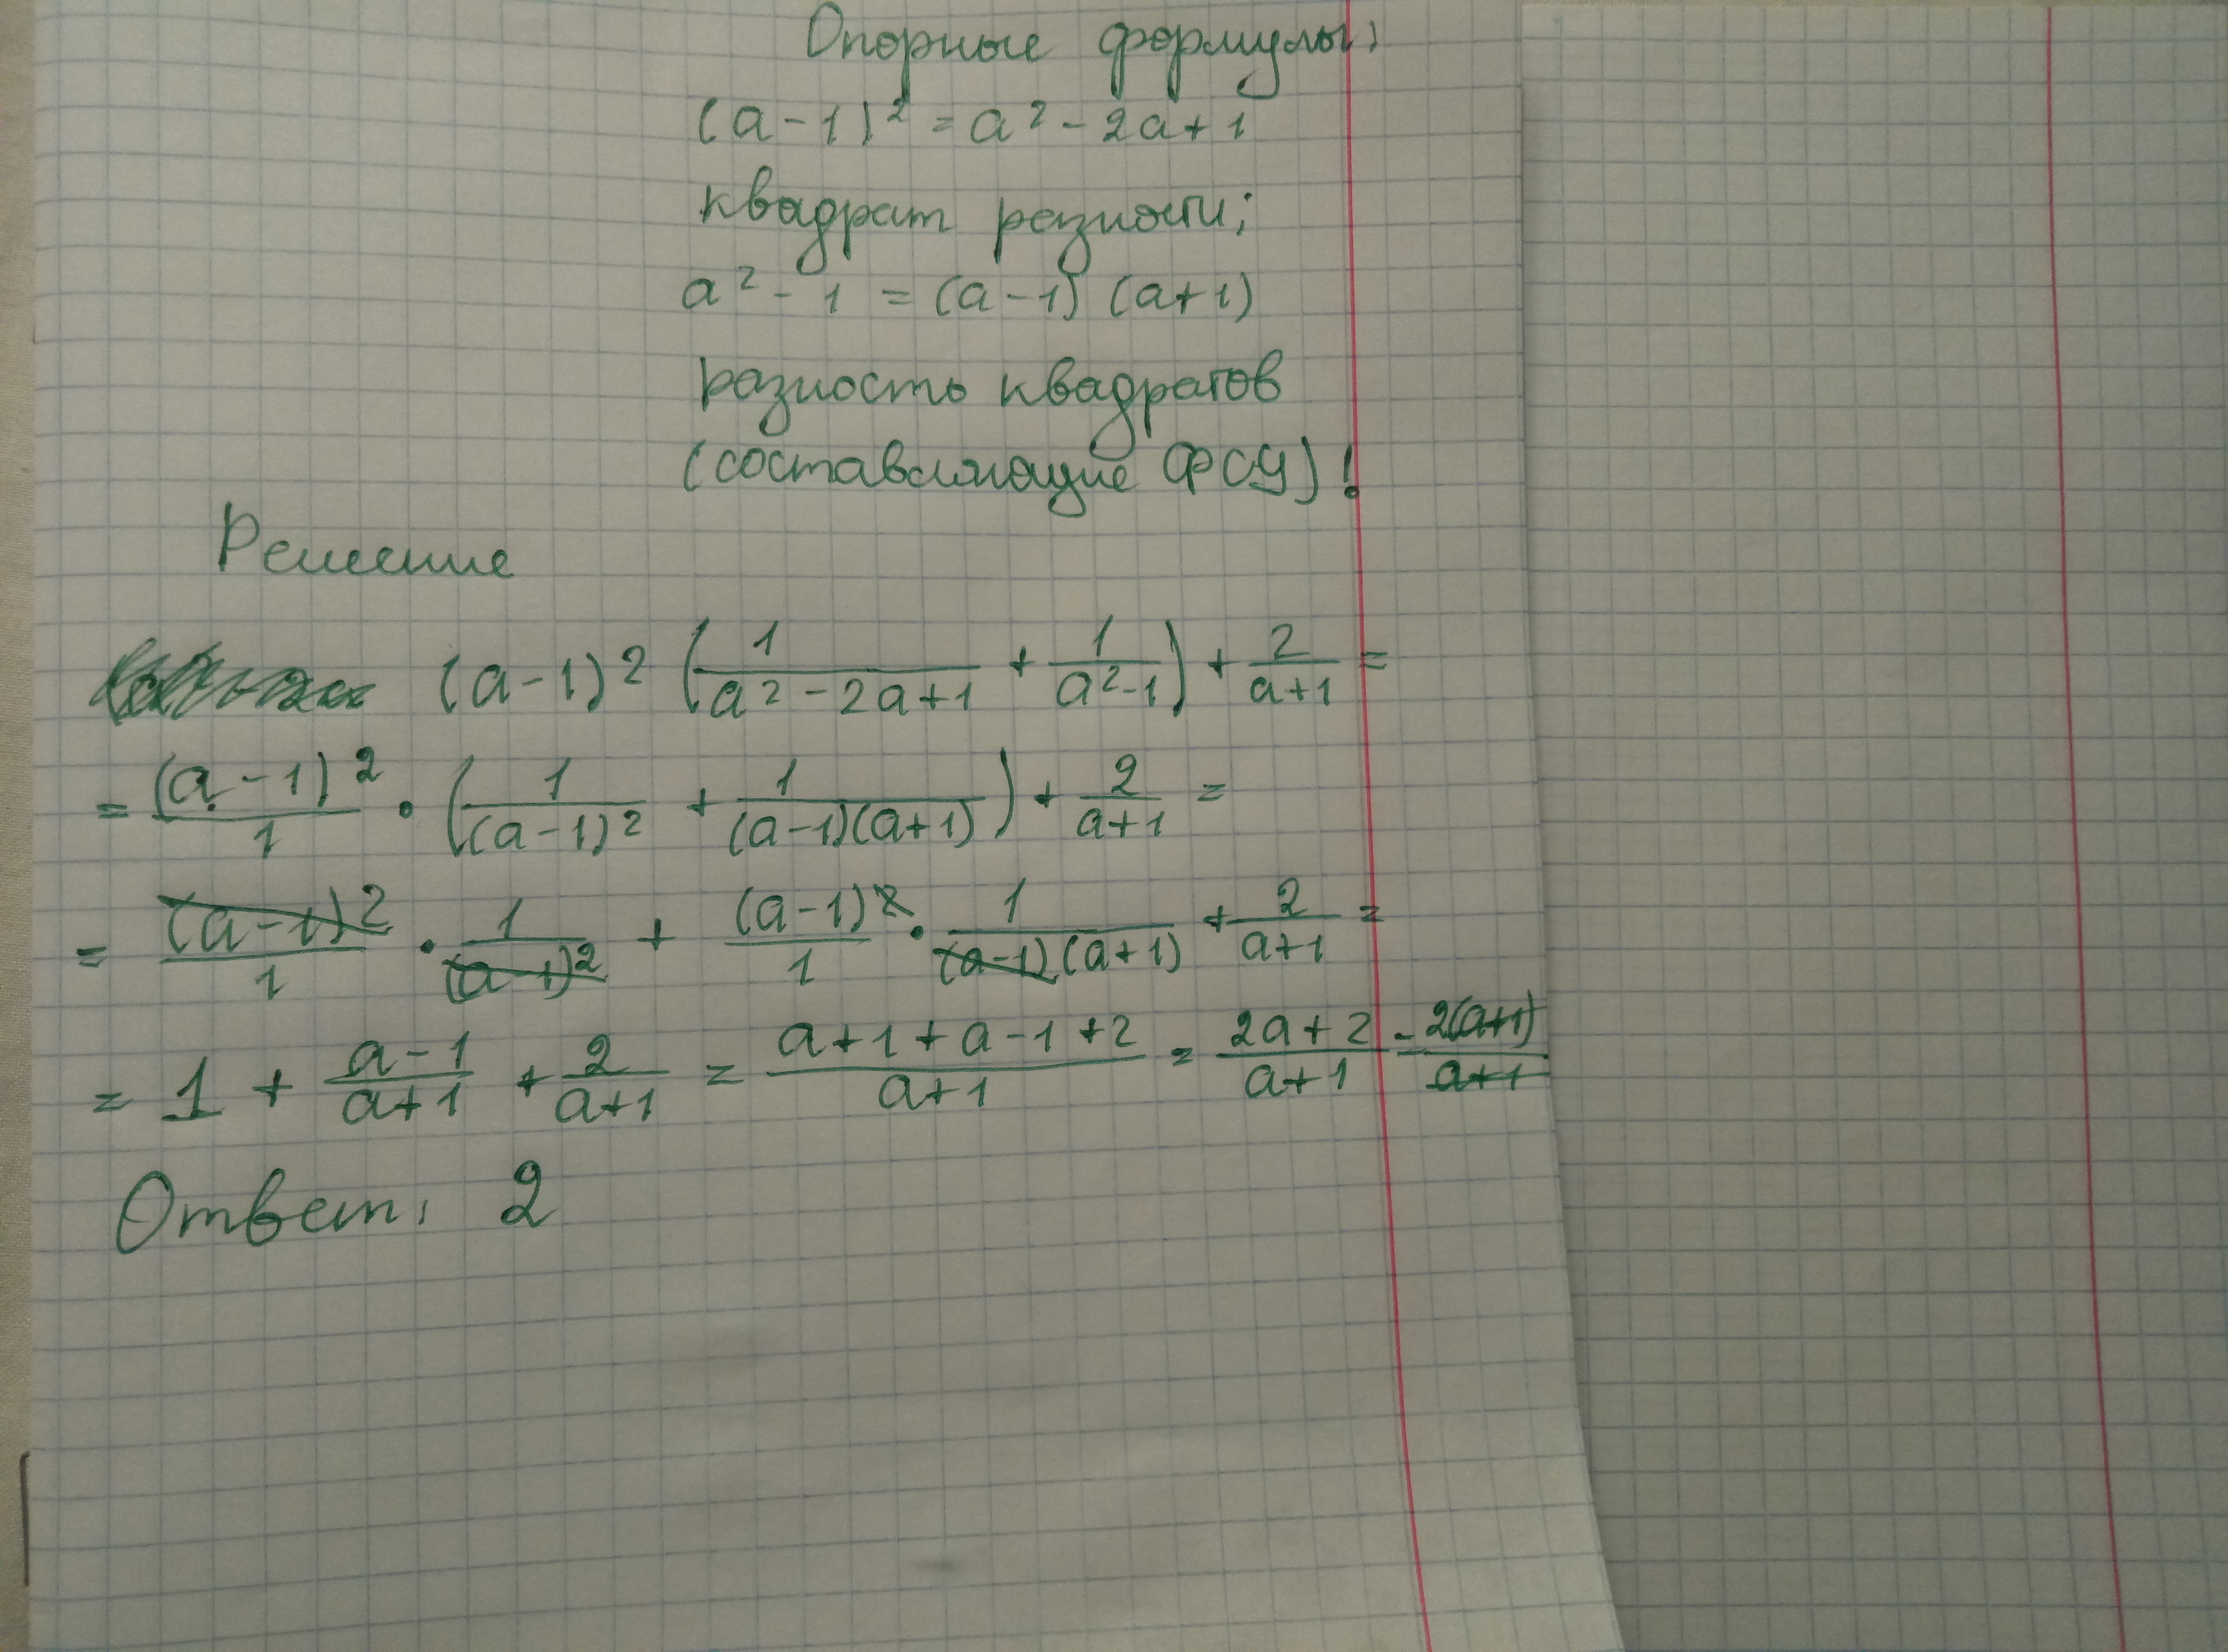 Опорные формулы:
(a-1)² = a² - 2a + 1
квадрат разности;
a² - 1 = (a-1) (a+1)
разность квадратов
(составляющие ФСУ)!
Решение
(a-1)² (1/(a²-2a+1) + 1/(a²-1)) + 2/(a+1) =
= (a-1)²/1 · (1/(a-1)² + 1/((a-1)(a+1))) + 2/(a+1) =
= (a-1)²/1 · 1/(a-1)² + (a-1)²/1 · 1/((a-1)(a+1)) + 2/(a+1) =
= 1 + (a-1)/(a+1) + 2/(a+1) = (a+1+a-1+2)/(a+1) = (2a+2)/(a+1) = 2(a+1)/(a+1)
Ответ: 2